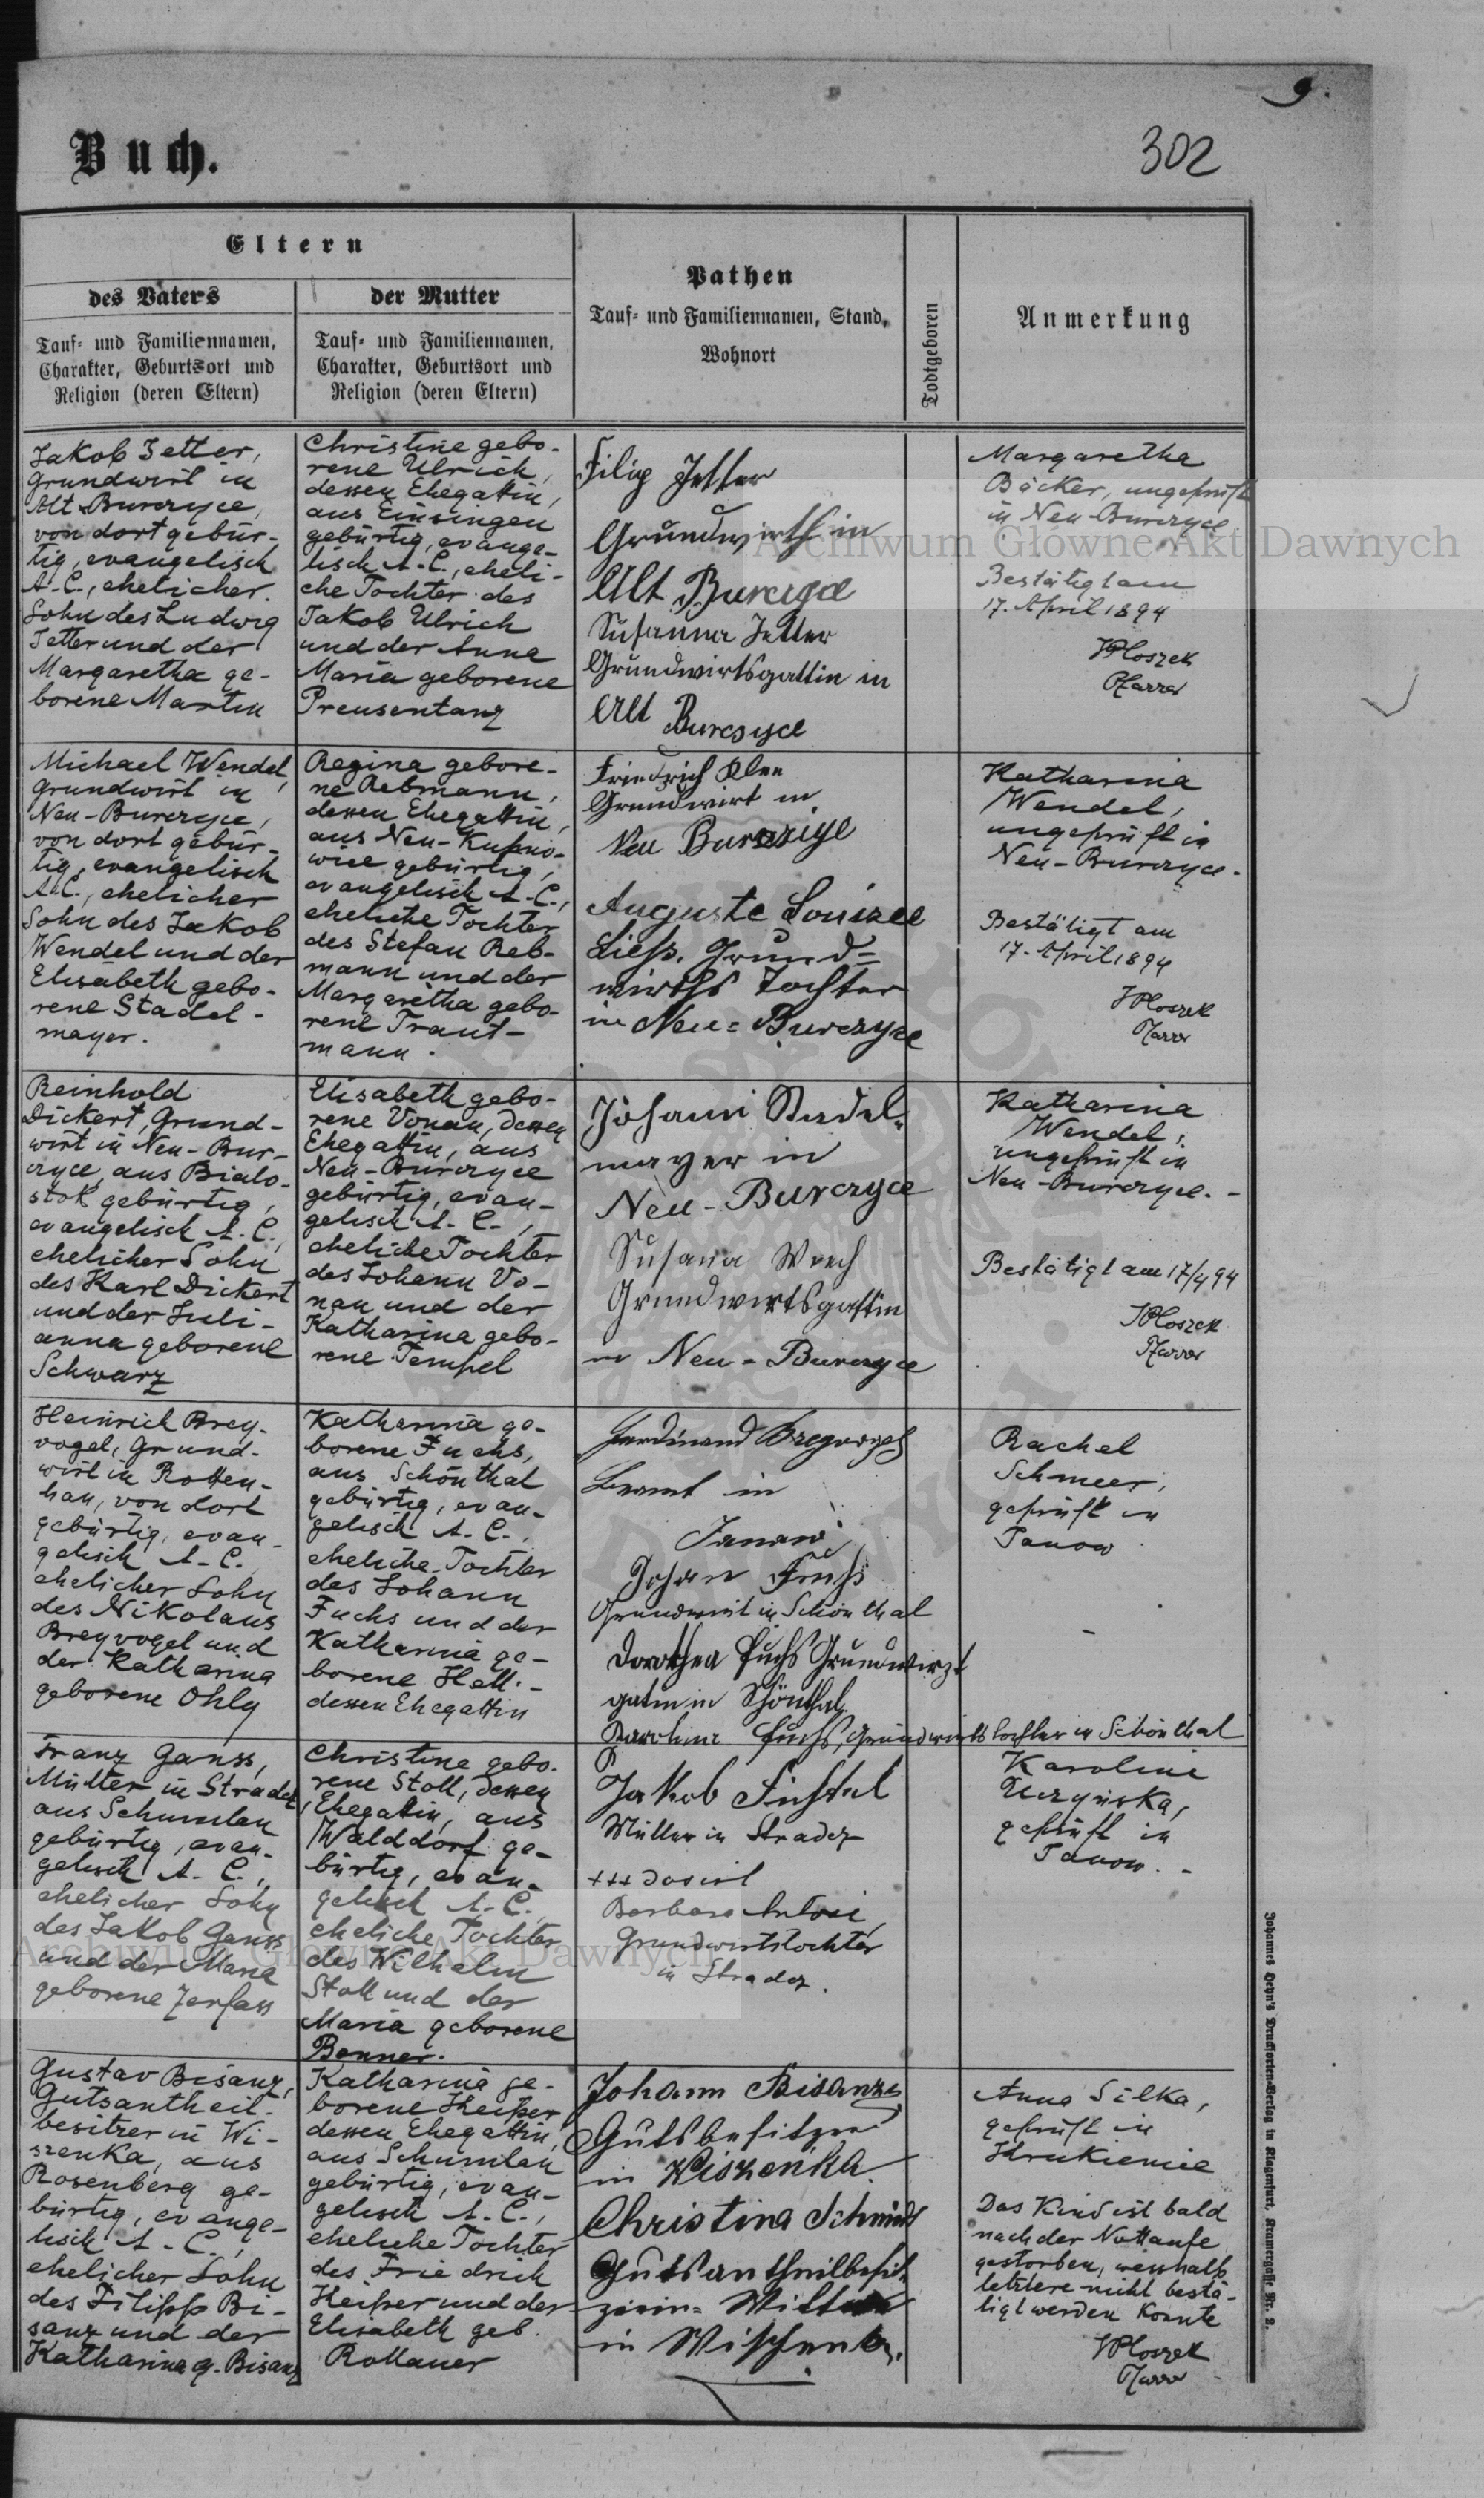 9.
Buch.
302
Eltern
des Vaters
Tauf- und Familiennamen,
Charakter, Geburtsort und
Religion (deren Eltern)
der Mutter
Tauf- und Familiennamen,
Charakter, Geburtsort und
Religion (deren Eltern)
Pathen
Tauf- und Familiennamen, Stand,
Wohnort
Todtgeboren
Anmerkung
Jakob Jetter,
Grundwirt in
Alt-Burczyce,
von dort gebür-
tig, evangelisch
A. C., ehelicher
Sohn des Ludwig
Jetter und der
Margaretha ge-
borene Martin
Christine gebo-
rene Ulrich,
dessen Ehegattin,
aus Einsingen
gebürtig, evange-
lisch A. C., eheli-
che Tochter des
Jakob Ulrich
und der Anna
Maria geborene
Preusentanz
Filip Jetter
Grundwirth in
Alt Burczyce
Susanna Jetter
Grundwirtsgattin in
Alt
Burcsyce
Margaretha
Bäcker, ungeprüft
in Neu-Burczyce
Bestätigt am
17. April 1894
Ploszek
Pfarrer
Michael Wendel,
Grundwirt in
Neu-Burczyce,
von dort gebür-
tig, evangelisch
A. C., ehelicher
Sohn des Jakob
Wendel und der
Elisabeth gebo-
rene Stadel-
mayer.
Regina gebore-
ne Rebmann,
dessen Ehegattin,
aus Neu-Kupno-
wice gebürtig,
evangelisch A. C.,
eheliche Tochter
des Stefan Reb-
mann und der
Margaretha gebo-
rene Traut-
mann.
Friedrich Klee
Grundwirt in
Neu Burczyce
Auguste Louisee
Liess. Grund-
wirths Tochter
in Neu-Burczyce
Katharina
Wendel,
ungeprüft in
Neu-Burczyce.
Bestätigt am
17. April 1894
Ploszek
Pfarrer
Reinhold
Dickert, Grund-
wirt in Neu-Bur-
czyce, aus Bialo-
stok gebürtig,
evangelisch A. C.,
ehelicher Sohn
des Karl Dickert
und der Juli-
anna geborene
Schwarz
Elisabeth gebo-
rene Vonau, dessen
Ehegattin, aus
Neu-Burczyce
gebürtig, evan-
gelisch A. C.,
eheliche Tochter
des Johann Vo-
nau und der
Katharina gebo-
rene Tempel
Johann Stadel-
mayer in
Neu-Burczyce
Susana
Grundwirtsgattin
in Neu-Burczyce
Katharina
Wendel,
ungeprüft in
Neu-Burczyce. -
Bestätigt am 17/4 94
Ploszek
Pfarrer
Heinrich Brey-
vogel, Grund-
wirt in Rotten-
han, von dort
gebürtig, evan-
gelisch A. C.
ehelicher Sohn
des Nikolaus
Breyvogel und
der Katharina
geborene Ohly
Katharina ge-
borene Fuchs,
aus Schönthal
gebürtig, evan-
gelisch A. C.,
eheliche Tochter
des Johann
Fuchs und der
Katharina ge-
borene
dessen Ehegattin
Ferdinand Bregvogel
Beamt in
Janow
Johan Fuchs
Grundwirt in Schönthal
Dorothea Fuchs Grundwirzt
gatin in Schönthal
Karolina Fuchs, Grundwirtstochter in Schönthal
Rachel
Schmeer,
geprüft in
Janow
Franz Ganss,
Müller in Stradcz,
aus Schumlau
gebürtig, evan-
gelisch A. C.,
ehelicher Sohn
des Jakob Ganss
und der Maria
geborene Zerfass
Christine gebo-
rene Stoll, dessen
Ehegattin, aus
Walddorf ge-
bürtig, evan-
gelisch A. C.
eheliche Tochter
des Wilhelm
Stoll und der
Maria geborene
Benner.
Jakob
Müller in Stradcz
+++
Barbara
Grundwirtstochter
in Stradcz.
Karoline
geprüft in
Janow. -
Gustav Bisanz,
Gutsantheil-
besitzer in Wi-
szenka, aus
Rosenberg ge-
bürtig, evange-
lisch A. C.,
ehelicher Sohn
des Filipp Bi-
sanz und der
Katharina g. Bisanz
Katharina ge-
borene Heißer
dessen Ehegattin,
aus Schumlau
gebürtig, evan-
gelisch A. C.,
eheliche Tochter
des Friedrich
Heißer und der
Elisabeth geb.
Rollauer
Johann Bisanz
Gutsbesitzer
in Wiszenka.
Christina Schmidt
Gutsantheilbesit-
zerin-
in Wischenka.
Anna Silka,
geprüft in
Hrukienice
Das Kind ist bald
nach der Nottaufe
gestorben, weshalb
letztere nicht bestä-
tigt werden konnte
Ploszek
Pfarrer
Johannes Heyn's Drucksorten-Verlag in Klagenfurt, Kramergasse Nr. 2.
Archiwum Główne Akt Dawnych
Archiwum Główne Akt Dawnych